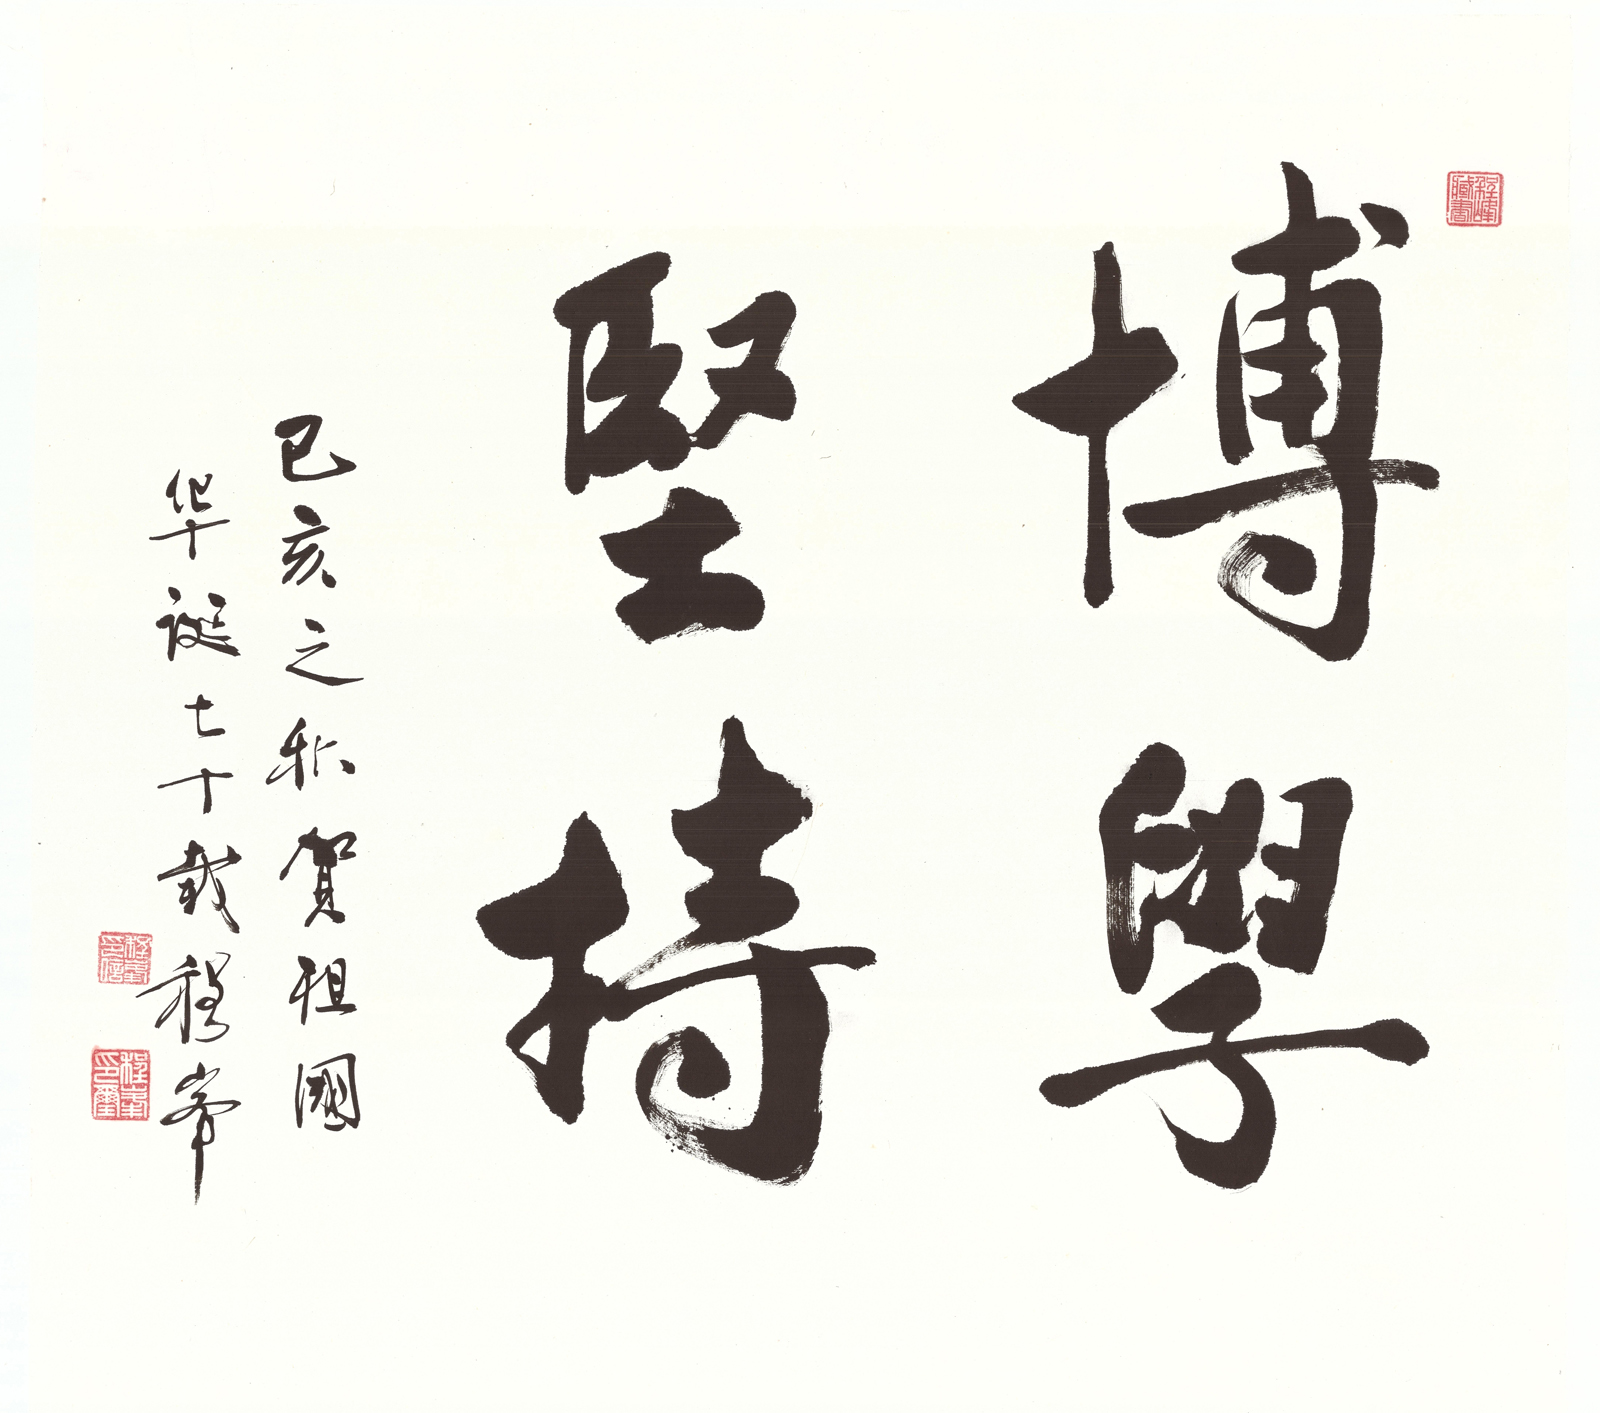 博學
堅持
己亥之秋賀祖國
华誕七十載程峯